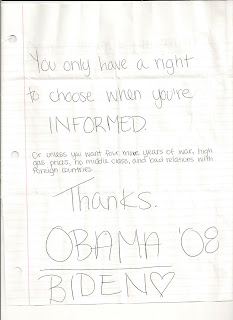 You only have a right
to choose when you're
INFORMED.
Or unless you want four more years of war, high
gas prices, no middle class, and bad relations with
foreign countries.
Thanks.
OBAMA '08
BIDEN♡